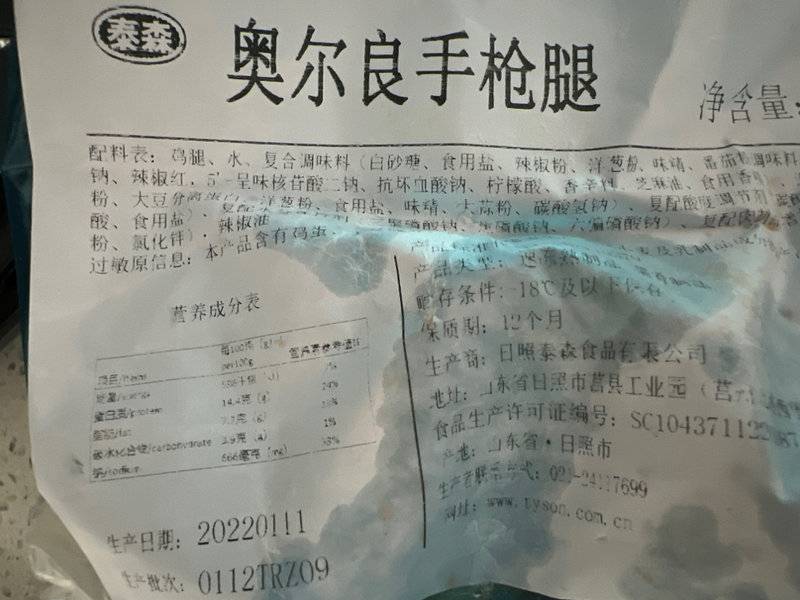 泰森
奥尔良手枪腿
净含量:
配料表: 鸡腿、水、复合调味料 (白砂糖、食用盐、辣椒粉、洋葱粉、味精、番茄粉调味料
钠、辣椒红、5'-呈味核苷酸二钠、抗坏血酸钠、柠檬酸、香辛料、芝麻油、食用香
粉、大豆分离蛋白、洋葱粉、食用盐、味精、大蒜粉、碳酸氢钠)、复配酸度调节剂
酸、食用盐)、辣椒油 焦磷酸钠、六偏磷酸钠)、复配
粉、氯化锌)、
过敏原信息: 本产品含有鸡蛋、
产品类型: 速冻
贮存条件: -18℃及以下保存
保质期: 12个月
生产商: 日照泰森食品有限公司
地址: 山东省日照市莒县工业园 (莒
食品生产许可证编号: SC104371122
产地: 山东省·日照市
生产者联系方式: 021-24117699
网址: www.tyson.com.cn
营养成分表
项目/items 每100克 (g) 营养素参考值%
per100g
能量/energy 7%
蛋白质/protein 14.4克 (g) 24%
脂肪/fat 7.7克 (g)
碳水化合物/carbohydrate 2.9克 (g) 1%
钠/sodium 666毫克 (mg) 33%
生产日期: 20220111
生产批次: 0112TRZ09